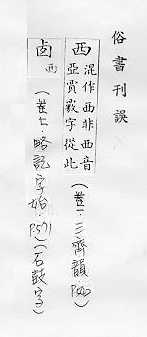 俗書刊誤
西 混作西非西音
亞賈覈字從此
(卷一・三齊韻 P543)
卤 西
(卷七・略記字始・P.571)(石鼓字)